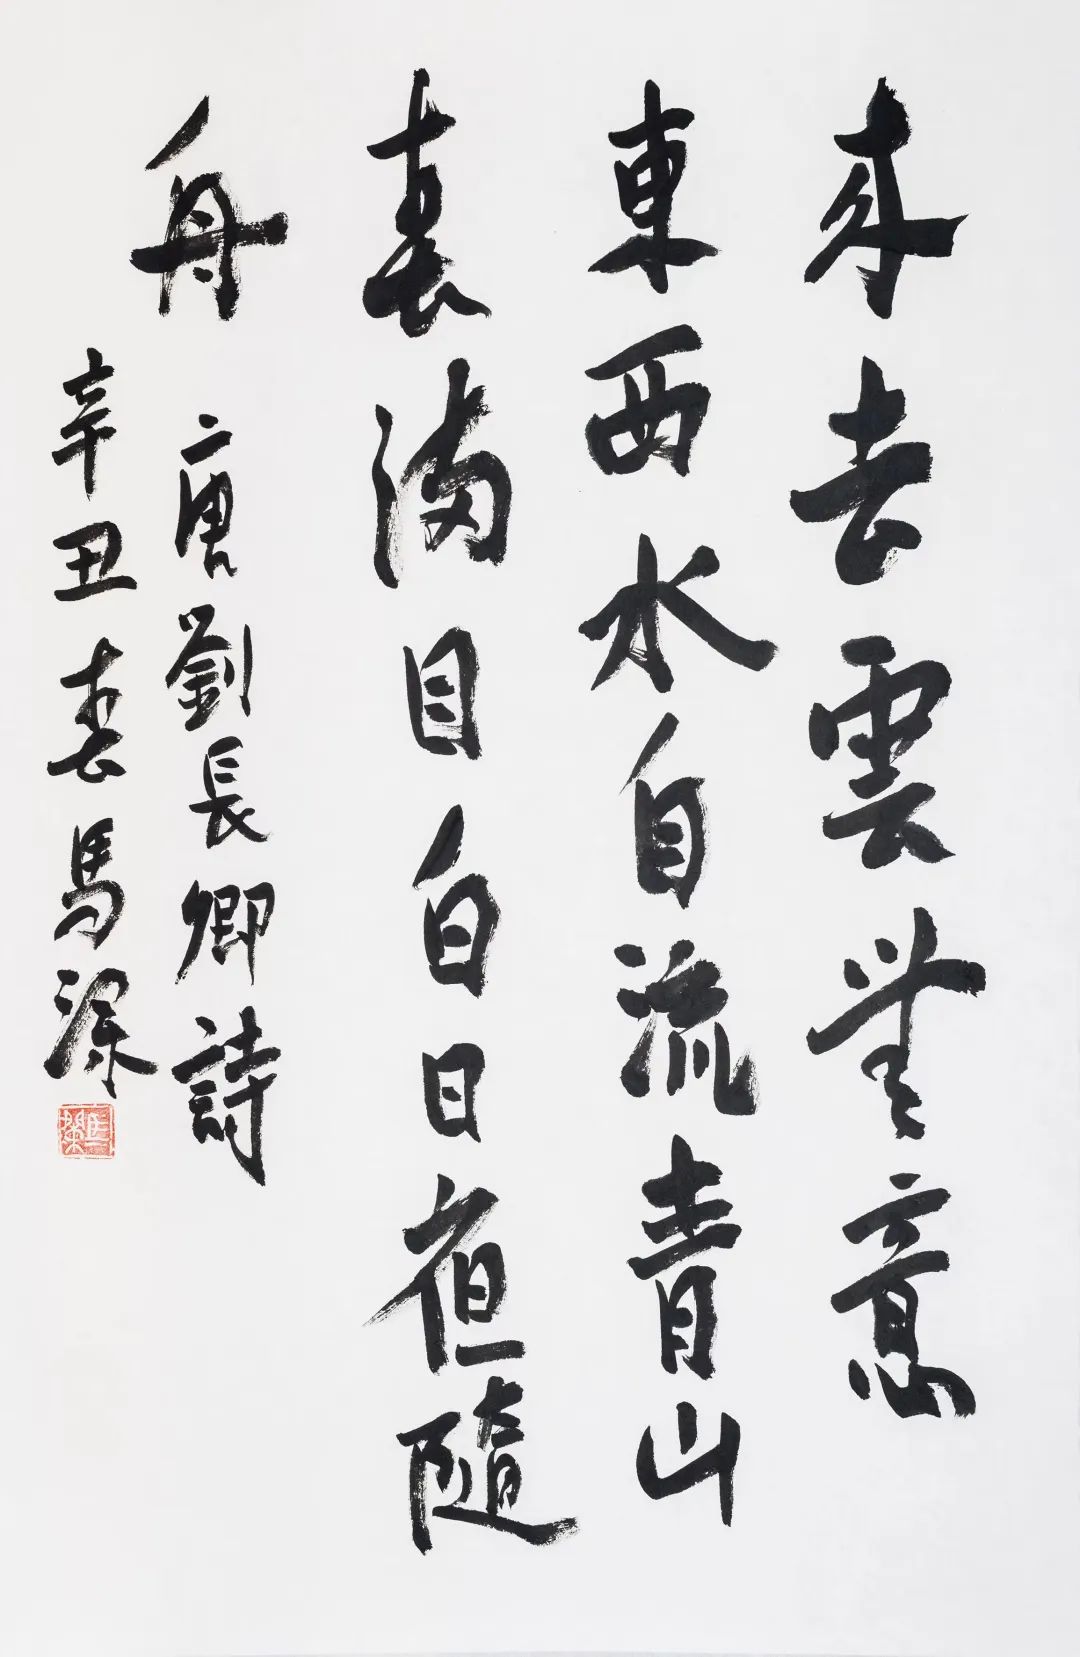 來去雲無意
東西水自流青山
春滿目白日隨
舟
唐劉長卿詩
辛丑春馬